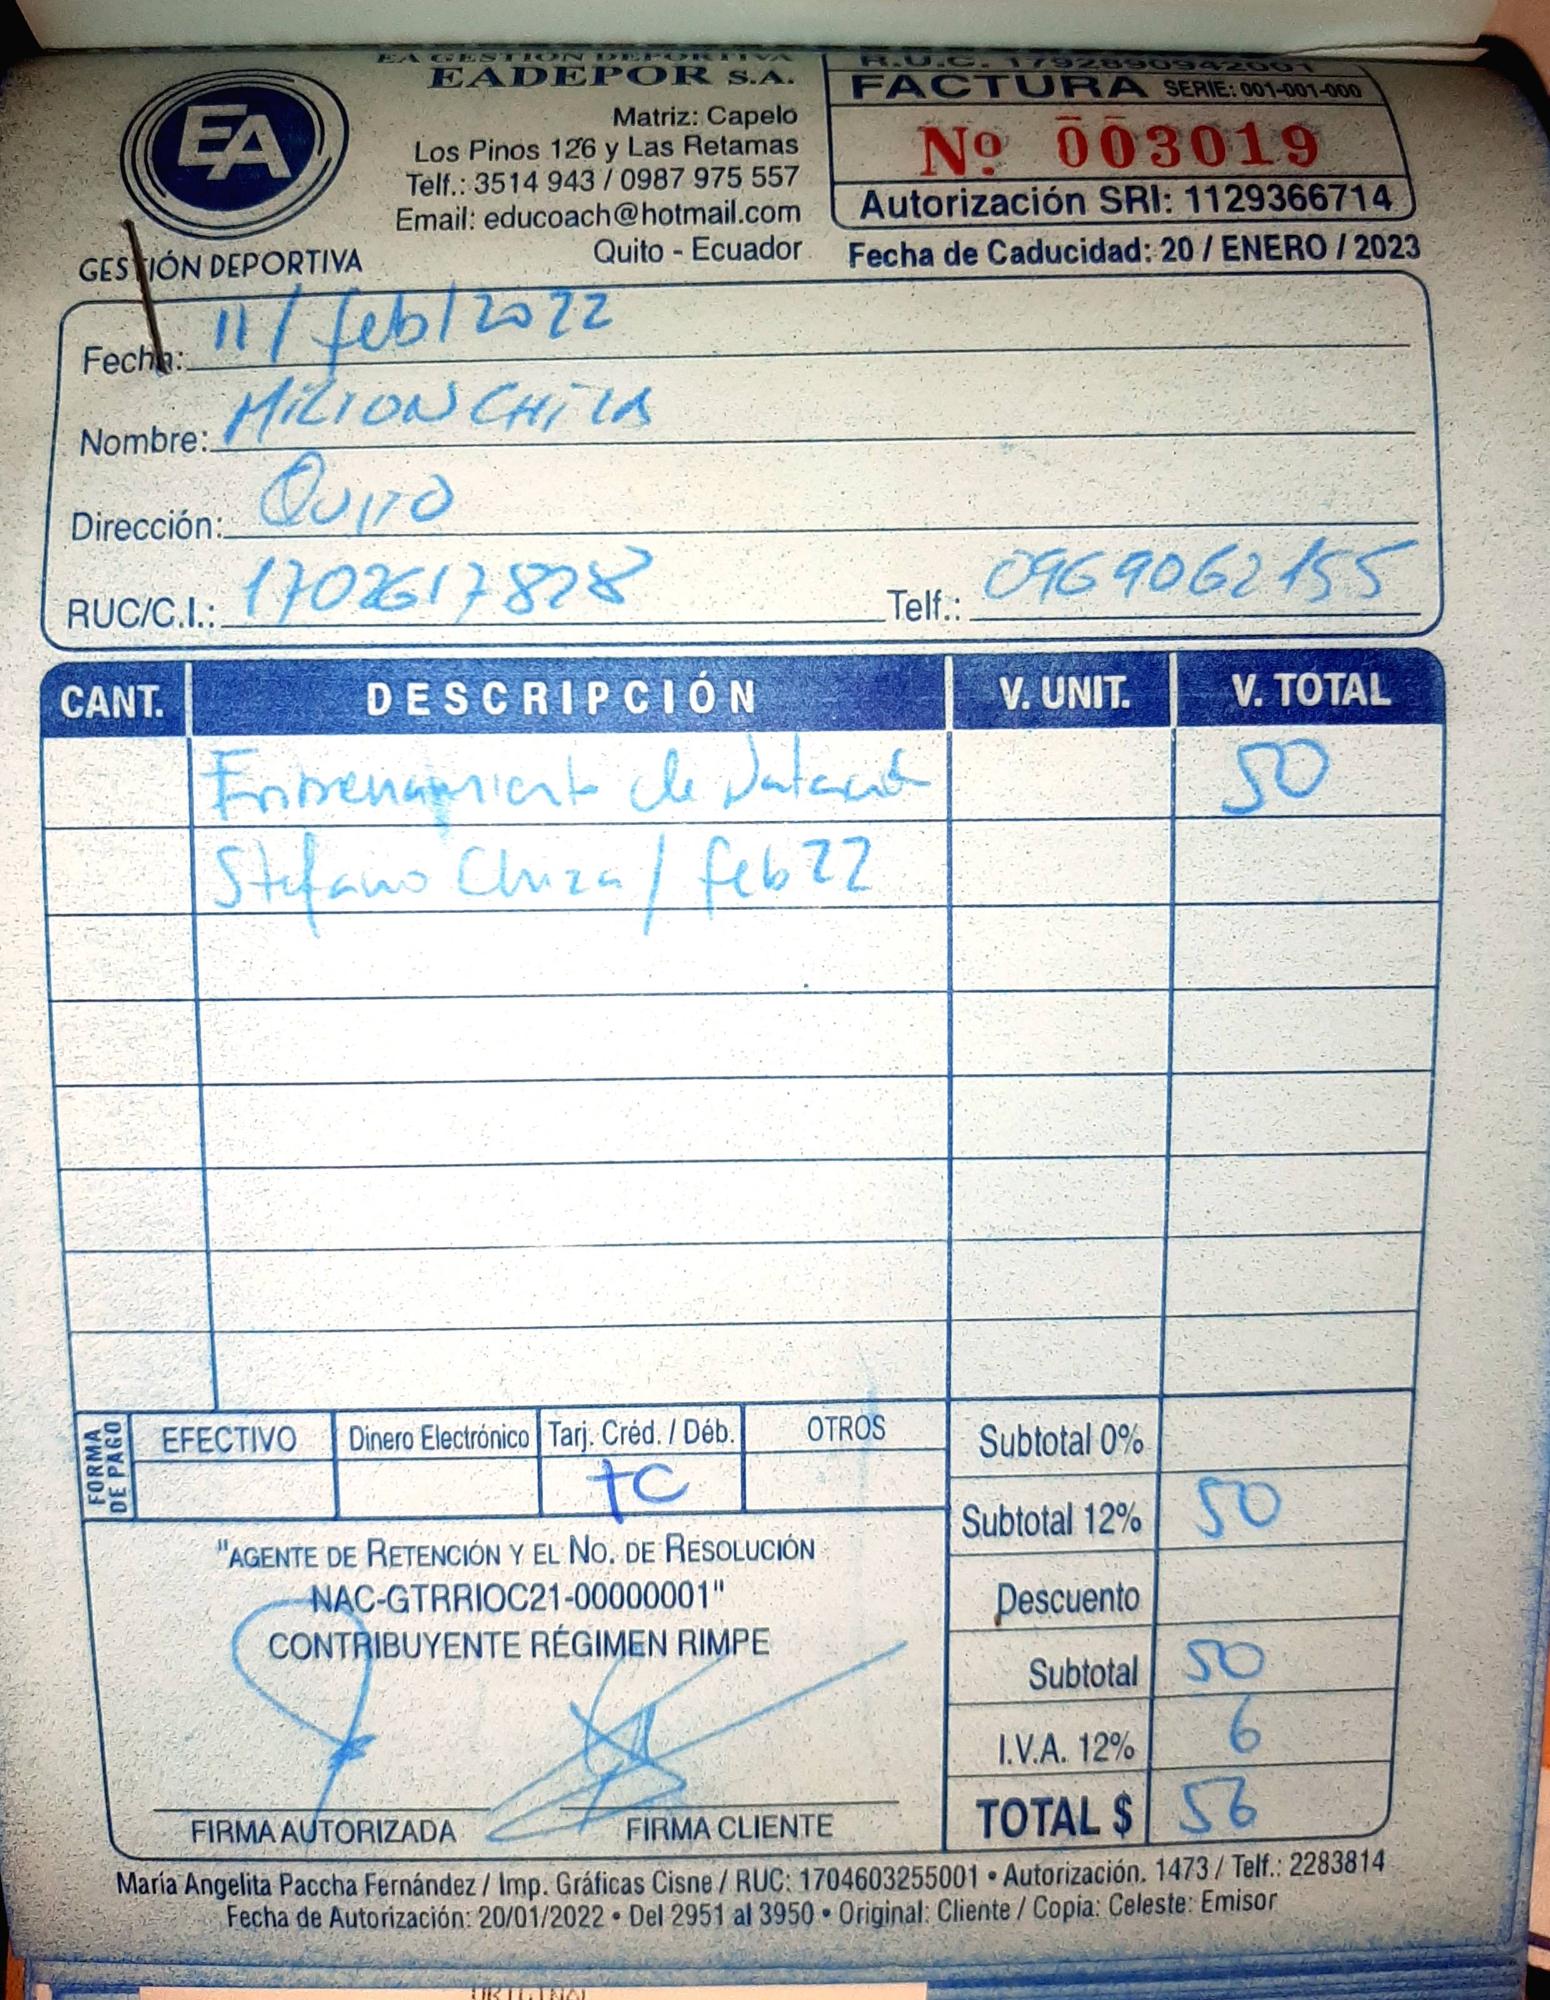 EA GESTIÓN DEPORTIVA
EADEPOR S.A.
EA
GESTIÓN DEPORTIVA
Matriz: Capelo
Los Pinos 126 y Las Retamas
Telf.: 3514 943 / 0987 975 557
Email: educoach@hotmail.com
Quito - Ecuador
R.U.C. 1792890942001
FACTURA SERIE: 001-001-000
Nº 003019
Autorización SRI: 1129366714
Fecha de Caducidad: 20 / ENERO / 2023
Fecha: 11 / feb / 2022
Nombre: MILTON
Dirección: QUITO
RUC/C.I.: 1702617828 Telf.: 0969062155
CANT. DESCRIPCIÓN V. UNIT. V. TOTAL
Entrenamiento de Natación 50
Stefano / feb 22
FORMA DE PAGO
EFECTIVO Dinero Electrónico Tarj. Créd. / Déb. OTROS
TC
Subtotal 0%
Subtotal 12% 50
Descuento
Subtotal 50
I.V.A. 12% 6
TOTAL $ 56
"AGENTE DE RETENCIÓN Y EL NO. DE RESOLUCIÓN
NAC-GTRRIOC21-00000001"
CONTRIBUYENTE RÉGIMEN RIMPE
FIRMA AUTORIZADA FIRMA CLIENTE
María Angelita Paccha Fernández / Imp. Gráficas Cisne / RUC: 1704603255001 • Autorización. 1473 / Telf.: 2283814
Fecha de Autorización: 20/01/2022 • Del 2951 al 3950 • Original: Cliente / Copia: Celeste: Emisor
ORIGINAL